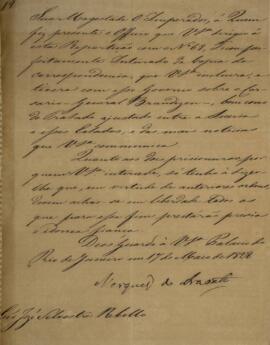 Sua Magestade O Imperador, á Quem
foi presente o Officio que V.S.ª dirigio á
esta Repartição com o N.º 68, ficou per-
feitamente Inteirado da copia da
correspondencia, que V.S.ª
tivera com esse Governo sobre o Cor-
sario General Brandizen = bem como
do Tratado ajustado entre a Suecia
e esses Estados, e das mais noticias
que V.S.ª communica.
Quanto aos dous prisioneiros por
quem V.S.ª interceda, só tenho a dizer-
lhe que, em virtude de anteriores ordens
devem achar-se em liberdade todos os
que para esse fim prestarão previa
e idonea fiança.
Deos Guarde a V.S.ª Palacio do
Rio de Janeiro em 17 de Maio de 1828
Marquez do Aracaty
Snr. Jozé Silvestre Rebello